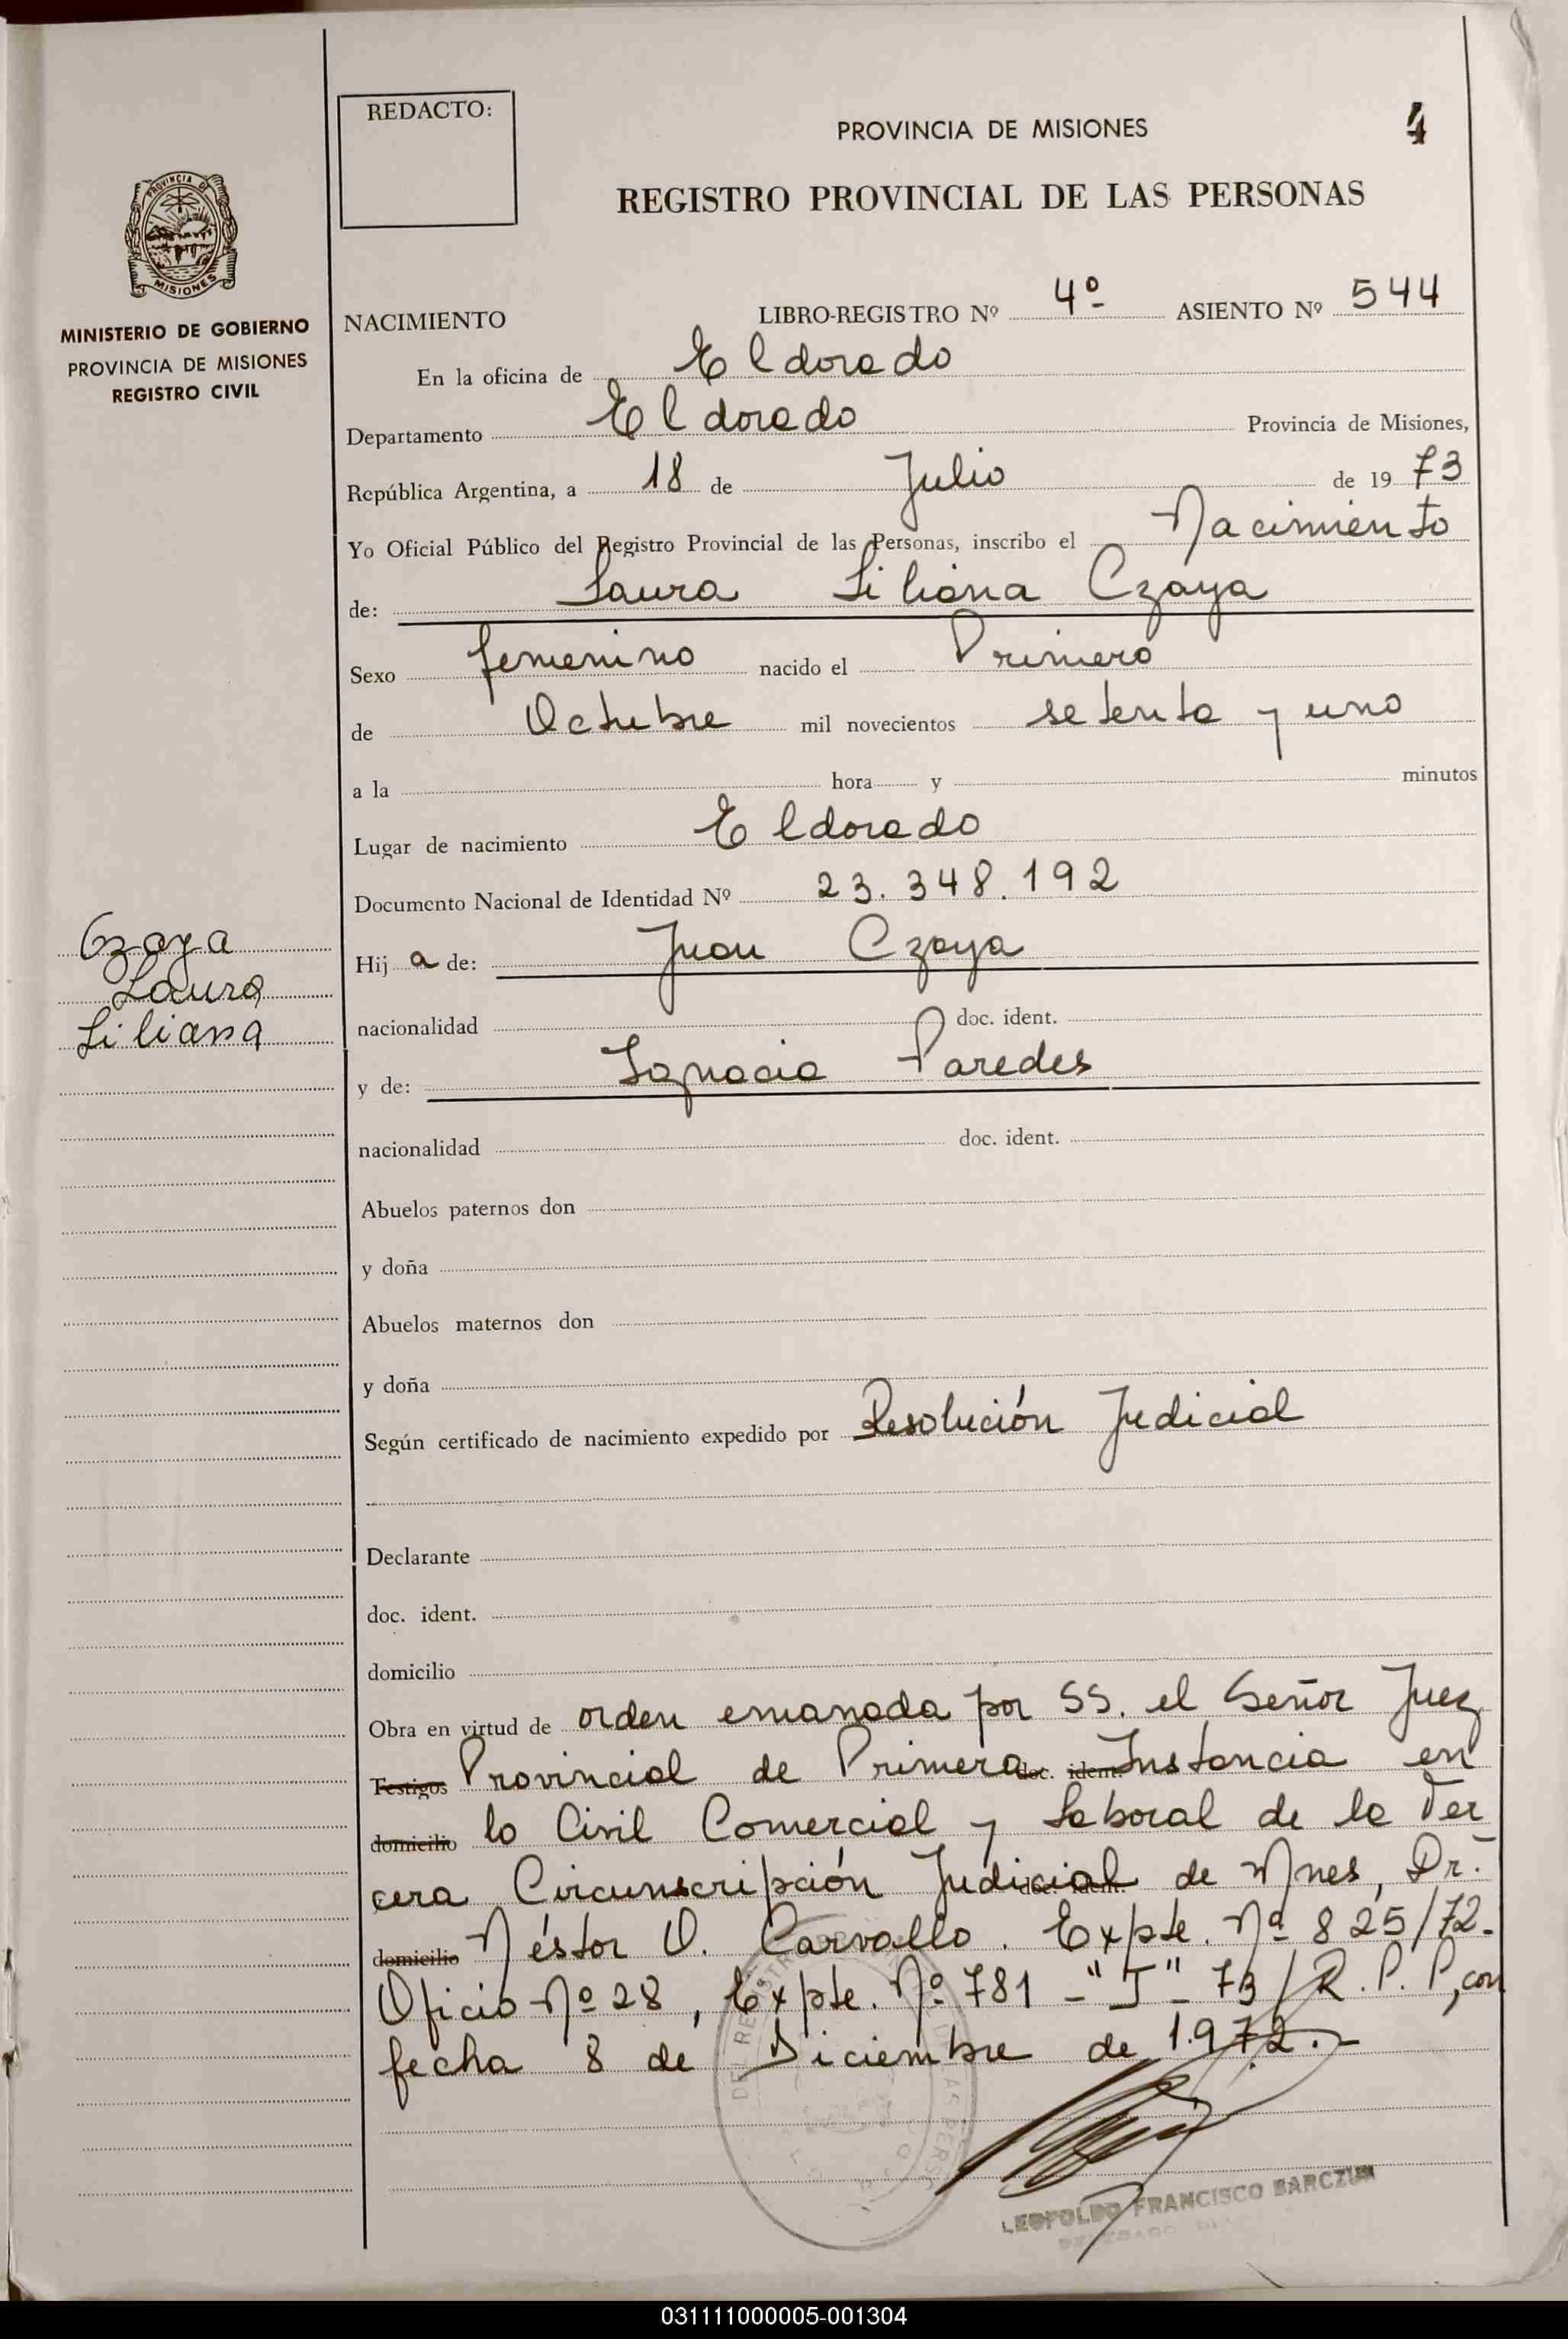 REDACTO:
PROVINCIA DE MISIONES
4
REGISTRO PROVINCIAL DE LAS PERSONAS
PROVINCIA DE
MISIONES
MINISTERIO DE GOBIERNO
PROVINCIA DE MISIONES
REGISTRO CIVIL
NACIMIENTO LIBRO-REGISTRO Nº 4º ASIENTO Nº 544
En la oficina de Eldorado
Departamento Eldorado Provincia de Misiones,
República Argentina, a 18 de Julio de 1973
Yo Oficial Público del Registro Provincial de las Personas, inscribo el Nacimiento
de: Laura Liliana Czaya
Sexo femenino nacido el Primero
de Octubre mil novecientos setenta y uno
a la hora y minutos
Lugar de nacimiento Eldorado
Documento Nacional de Identidad Nº 23.348.192
Czaya
Laura
Liliana
Hija de: Juan Czaya
nacionalidad doc. ident.
y de: Ignacia Paredes
nacionalidad doc. ident.
Abuelos paternos don
y doña
Abuelos maternos don
y doña
Según certificado de nacimiento expedido por Resolución Judicial
Declarante
doc. ident.
domicilio
Obra en virtud de orden emanada por SS. el Señor Juez
Testigos Provincial de Primera doc. ident. Instancia en
domicilio lo Civil Comercial y Laboral de la Ter
cera Circunscripción Judicial doc. ident. de Mnes, Dr.
domicilio Néstor O. Carvallo. Expte. Nº 825/72-
Oficio Nº 28, Expte. Nº 781 - "J" - 73/R.P.P, con
fecha 8 de Diciembre de 1.972.-
LEOPOLDO FRANCISCO BARCZUK
031111000005-001304